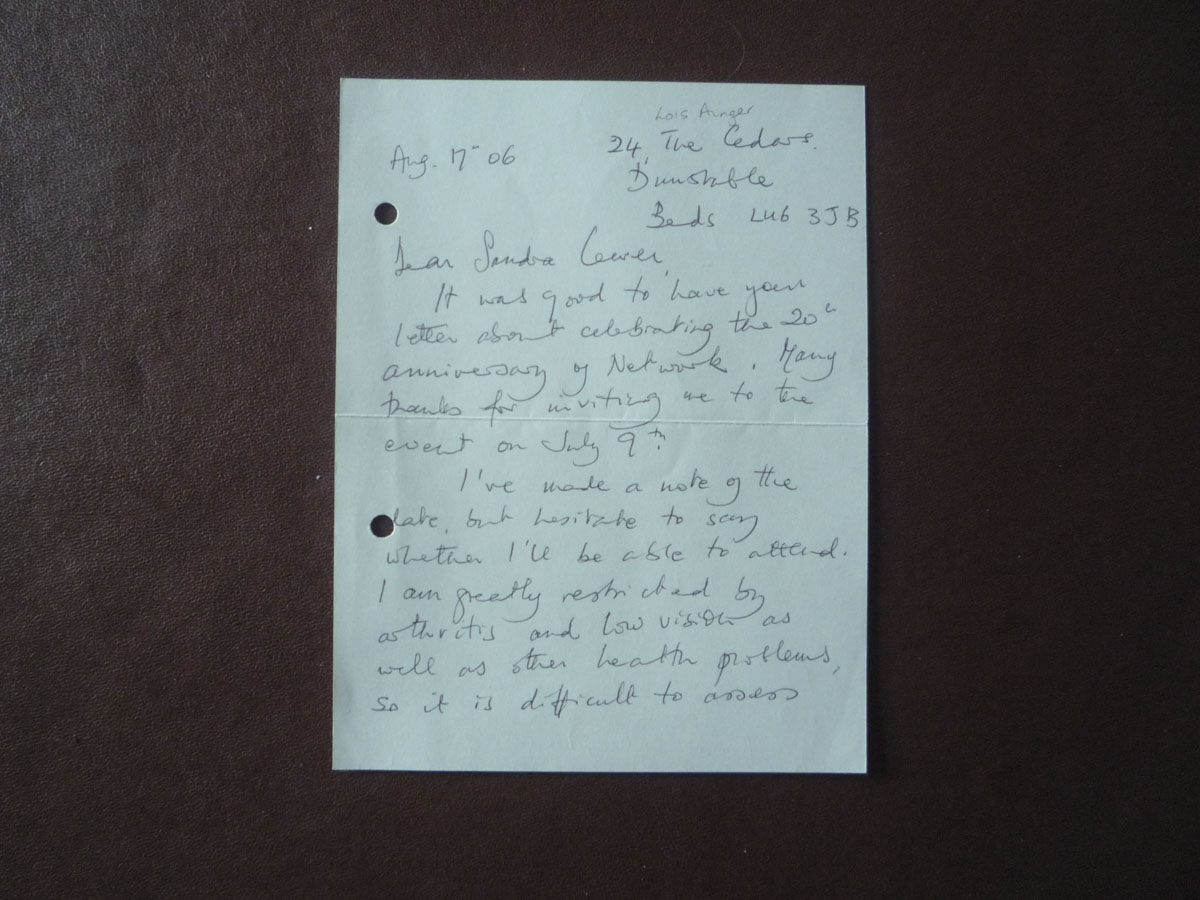 Lois Ainger
24, The Cedars.
Aug. 17th 06
Dunstable
Beds LU6 3JB
Dear Sandra
It was good to have your
letter about celebrating the 20th
anniversary of Network. Many
thanks for inviting me to the
event on July 9th.
I've made a note of the
date, but hesitate to say
whether I'll be able to attend.
I am greatly restricted by
arthritis and low vision as
well as other health problems,
so it is difficult to assess